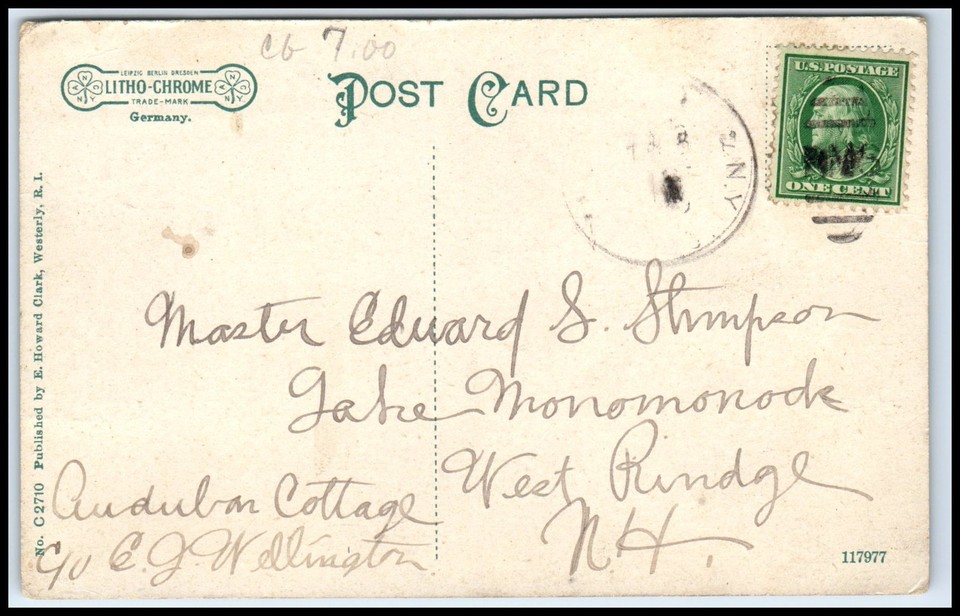 cb 7.00
LEIPZIG BERLIN DRESDEN
LITHO-CHROME
TRADE-MARK
Germany.
POST CARD
U.S. POSTAGE
ONE CENT
N.Y.
No. C 2710 Published by E. Howard Clark, Westerly, R. I.
Master Edward S. Stimpson
Lake Monomonock
West Rindge
N.H.
Audubon Cottage
c/o E. J. Wellington
117977